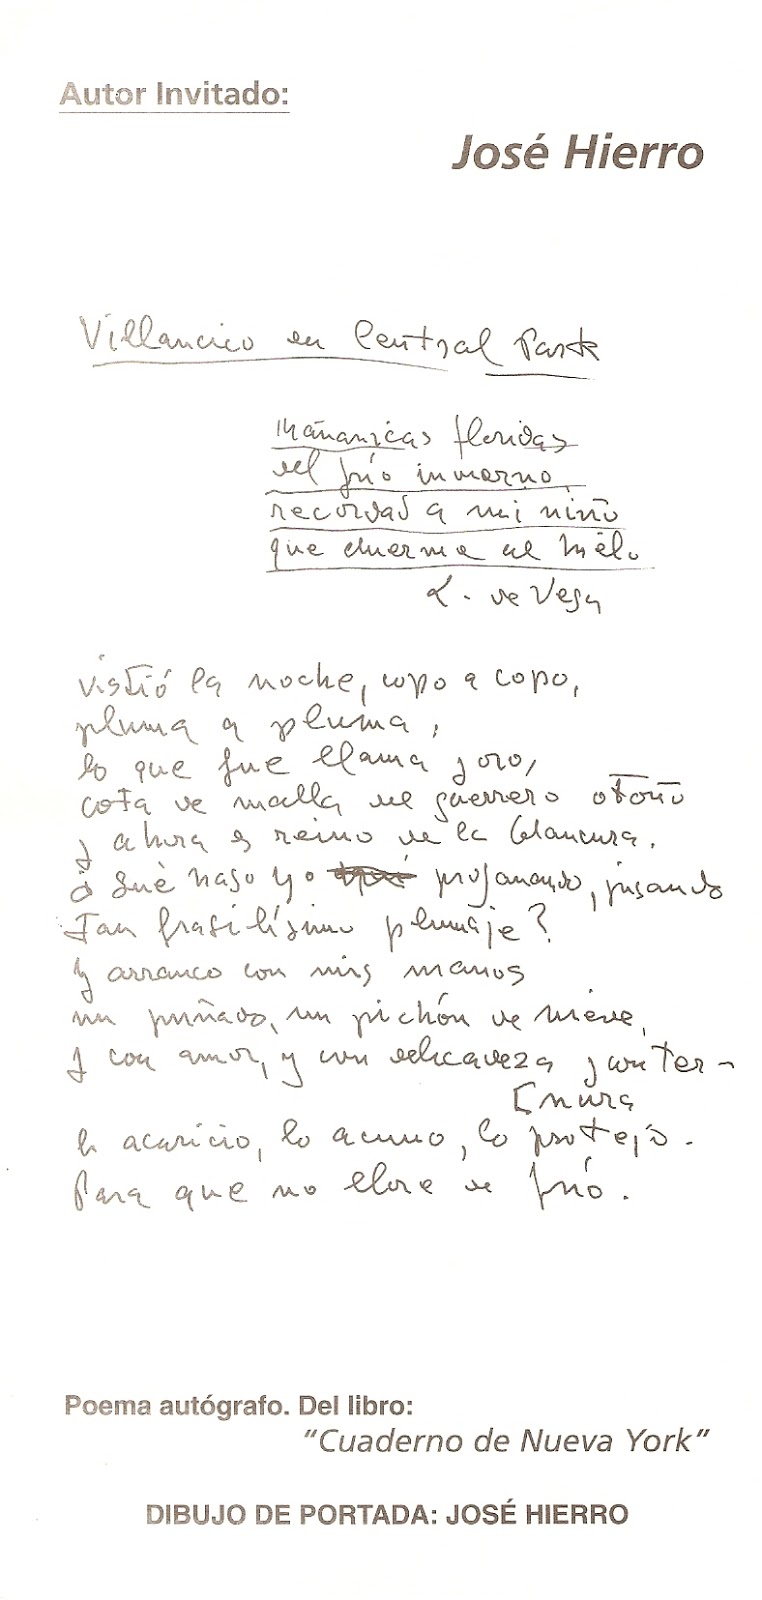 Autor Invitado:
José Hierro
Villancico en Central Park
Mañanicas floridas
del frío invierno,
recordad a mi niño
que duerme al hielo.
L. de Vega
Vistió la noche, copo a copo,
pluma a pluma,
lo que fue llama y oro,
cota de malla del guerrero otoño
y ahora es reino de la blancura.
¿Qué hago yo profanando, pisando
tan fragilísimo plumaje?
Y arranco con mis manos
un puñado, un pichón de nieve,
y con amor, y con delicadeza y con ter-
[nura
lo acaricio, lo acuno, lo protejo.
Para que no llore de frío.
Poema autógrafo. Del libro:
"Cuaderno de Nueva York"
DIBUJO DE PORTADA: JOSÉ HIERRO